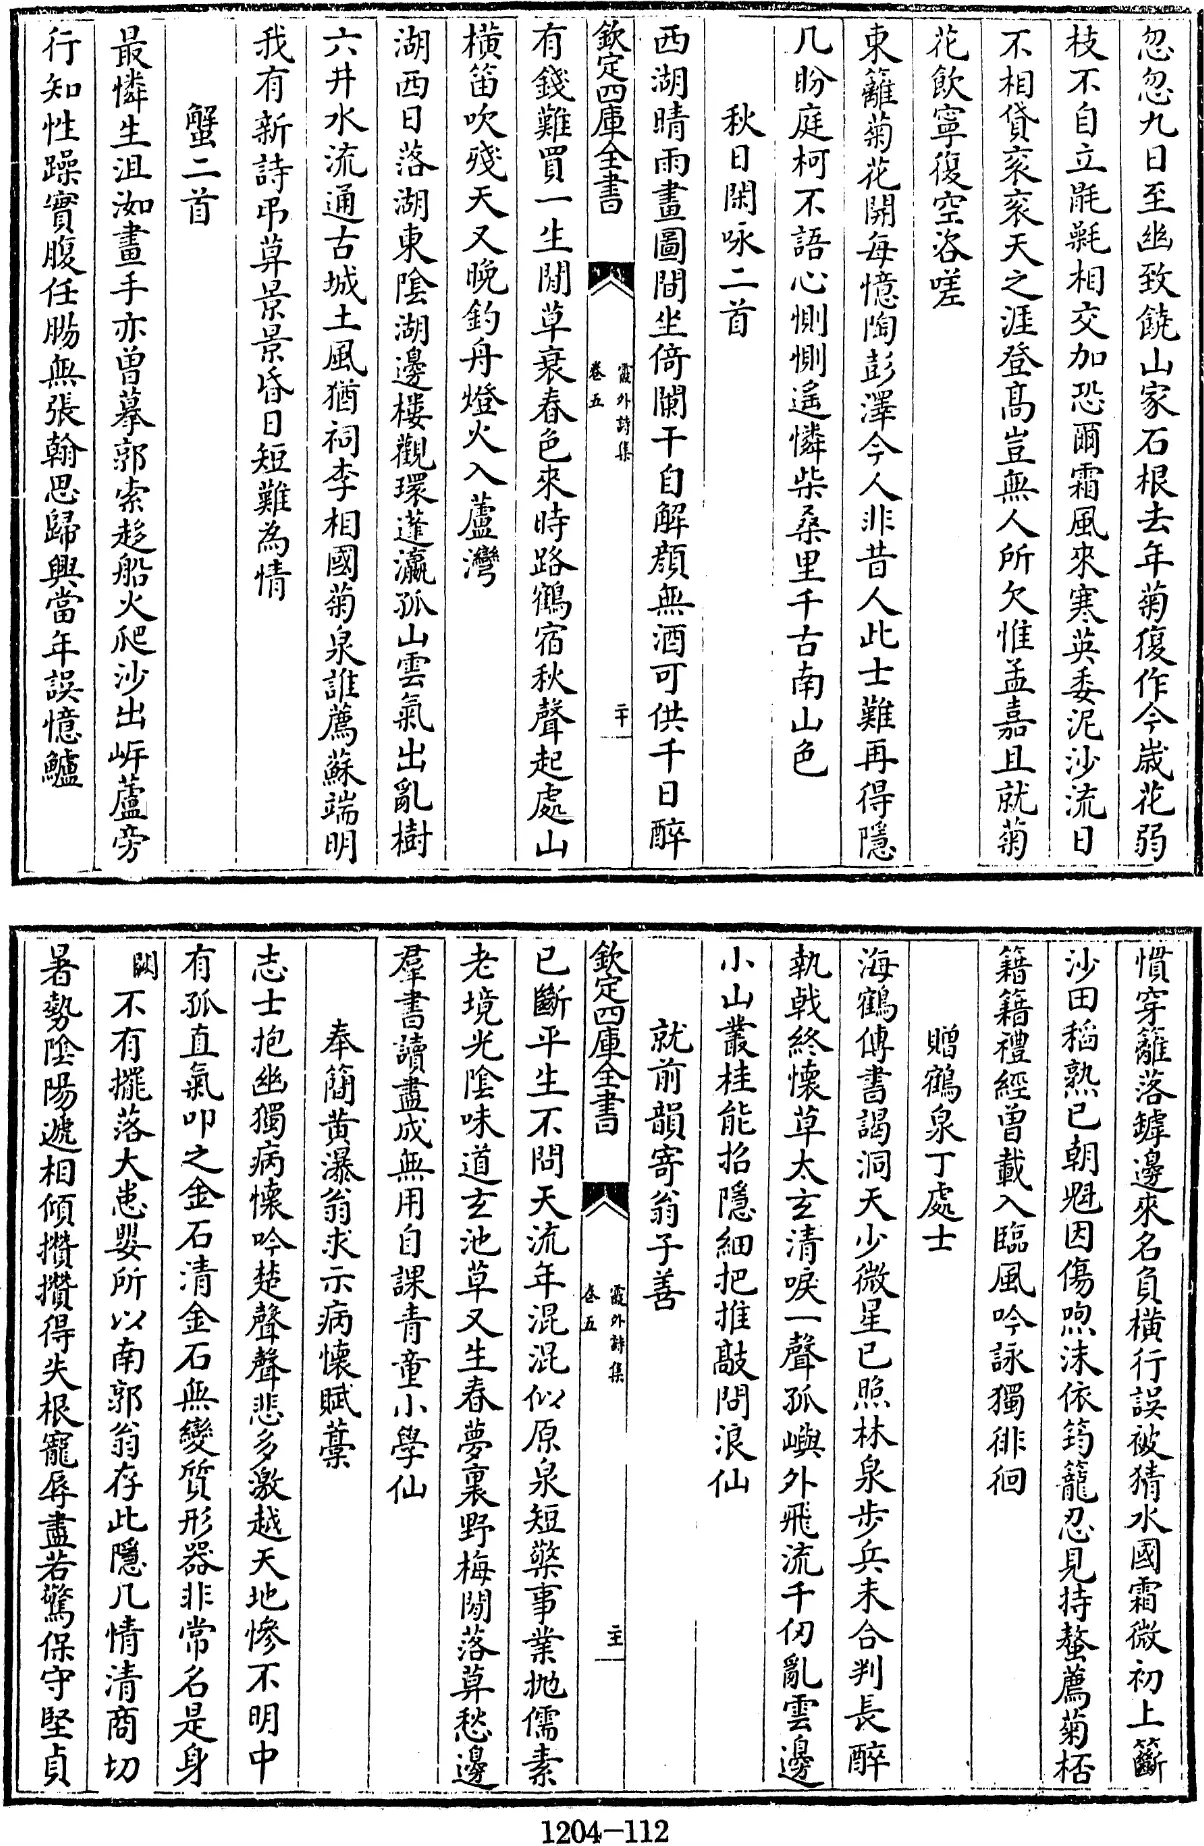 忽忽九日至幽致饒山家石根去年菊復作今歲花弱
枝不自立毷氉相交加恐爾霜風來寒英委泥沙流日
不相貸衮衮天之涯登高豈無人所欠惟孟嘉且就菊
花飲寧復空咨嗟
東籬菊花開每憶陶彭澤今人非昔人此士難再得隱
几盼庭柯不語心惻惻遙憐柴桑里千古南山色
秋日閑咏二首
西湖晴雨畫圖間坐倚闌干自解顔無酒可供千日醉
欽定四庫全書
霞外詩集
卷五
二十
有錢難買一生閒草衰春色來時路鶴宿秋聲起處山
橫笛吹殘天又晚釣舟燈火入蘆灣
湖西日落湖東陰湖邊樓觀環蓬瀛孤山雲氣出亂樹
六井水流通古城土風猶祠李相國菊泉誰薦蘇端明
我有新詩弔草景景昏日短難為情
蟹二首
最憐生沮洳畫手亦曾摹郭索趍船火爬沙出岍蘆旁
行知性躁實腹任腸無張翰思歸興當年誤憶鱸
慣穿籬落罅邊來名負橫行誤被猜水國霜微初上籪
沙田稻熟已朝魁因傷喣沫依筠籠忍見持螯薦菊桮
籍籍禮經曾載入臨風吟詠獨徘徊
贈鶴泉丁處士
海鶴傳書謁洞天少微星已照林泉步兵未合判長醉
執戟終懷草太玄清唳一聲孤嶼外飛流千仞亂雲邊
小山叢桂能招隱細把推敲問浪仙
就前韻寄翁子善
欽定四庫全書
霞外詩集
卷五
主
已斷平生不問天流年混混似原泉短檠事業抛儒素
老境光陰味道玄池草又生春夢裏野梅閒落草愁邊
羣書讀盡成無用自課青童小學仙
奉簡黄瀑翁求示病懷賦藁
志士抱幽獨病懷吟楚聲聲悲多激越天地慘不明中
有孤直氣叩之金石清金石無變質形器非常名是身
闕不有擺落大患嬰所以南郭翁存此隱几情清商切
暑勢陰陽遞相傾攢攢得失根寵辱盡若驚保守堅貞
1204-112